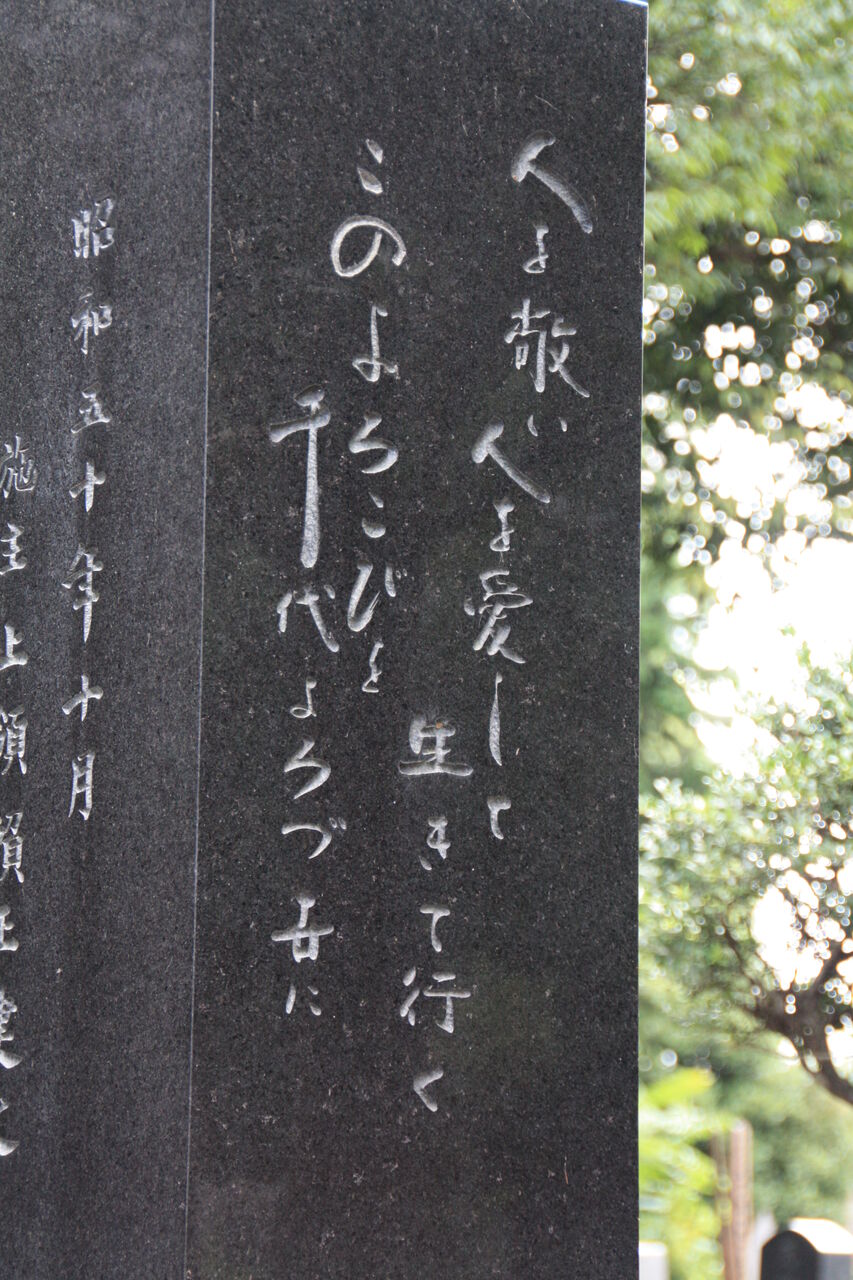 人を敬い人を愛して
生きて行く
このよろこびを
千代よろづ世に
昭和五十年十月
施主上領頼